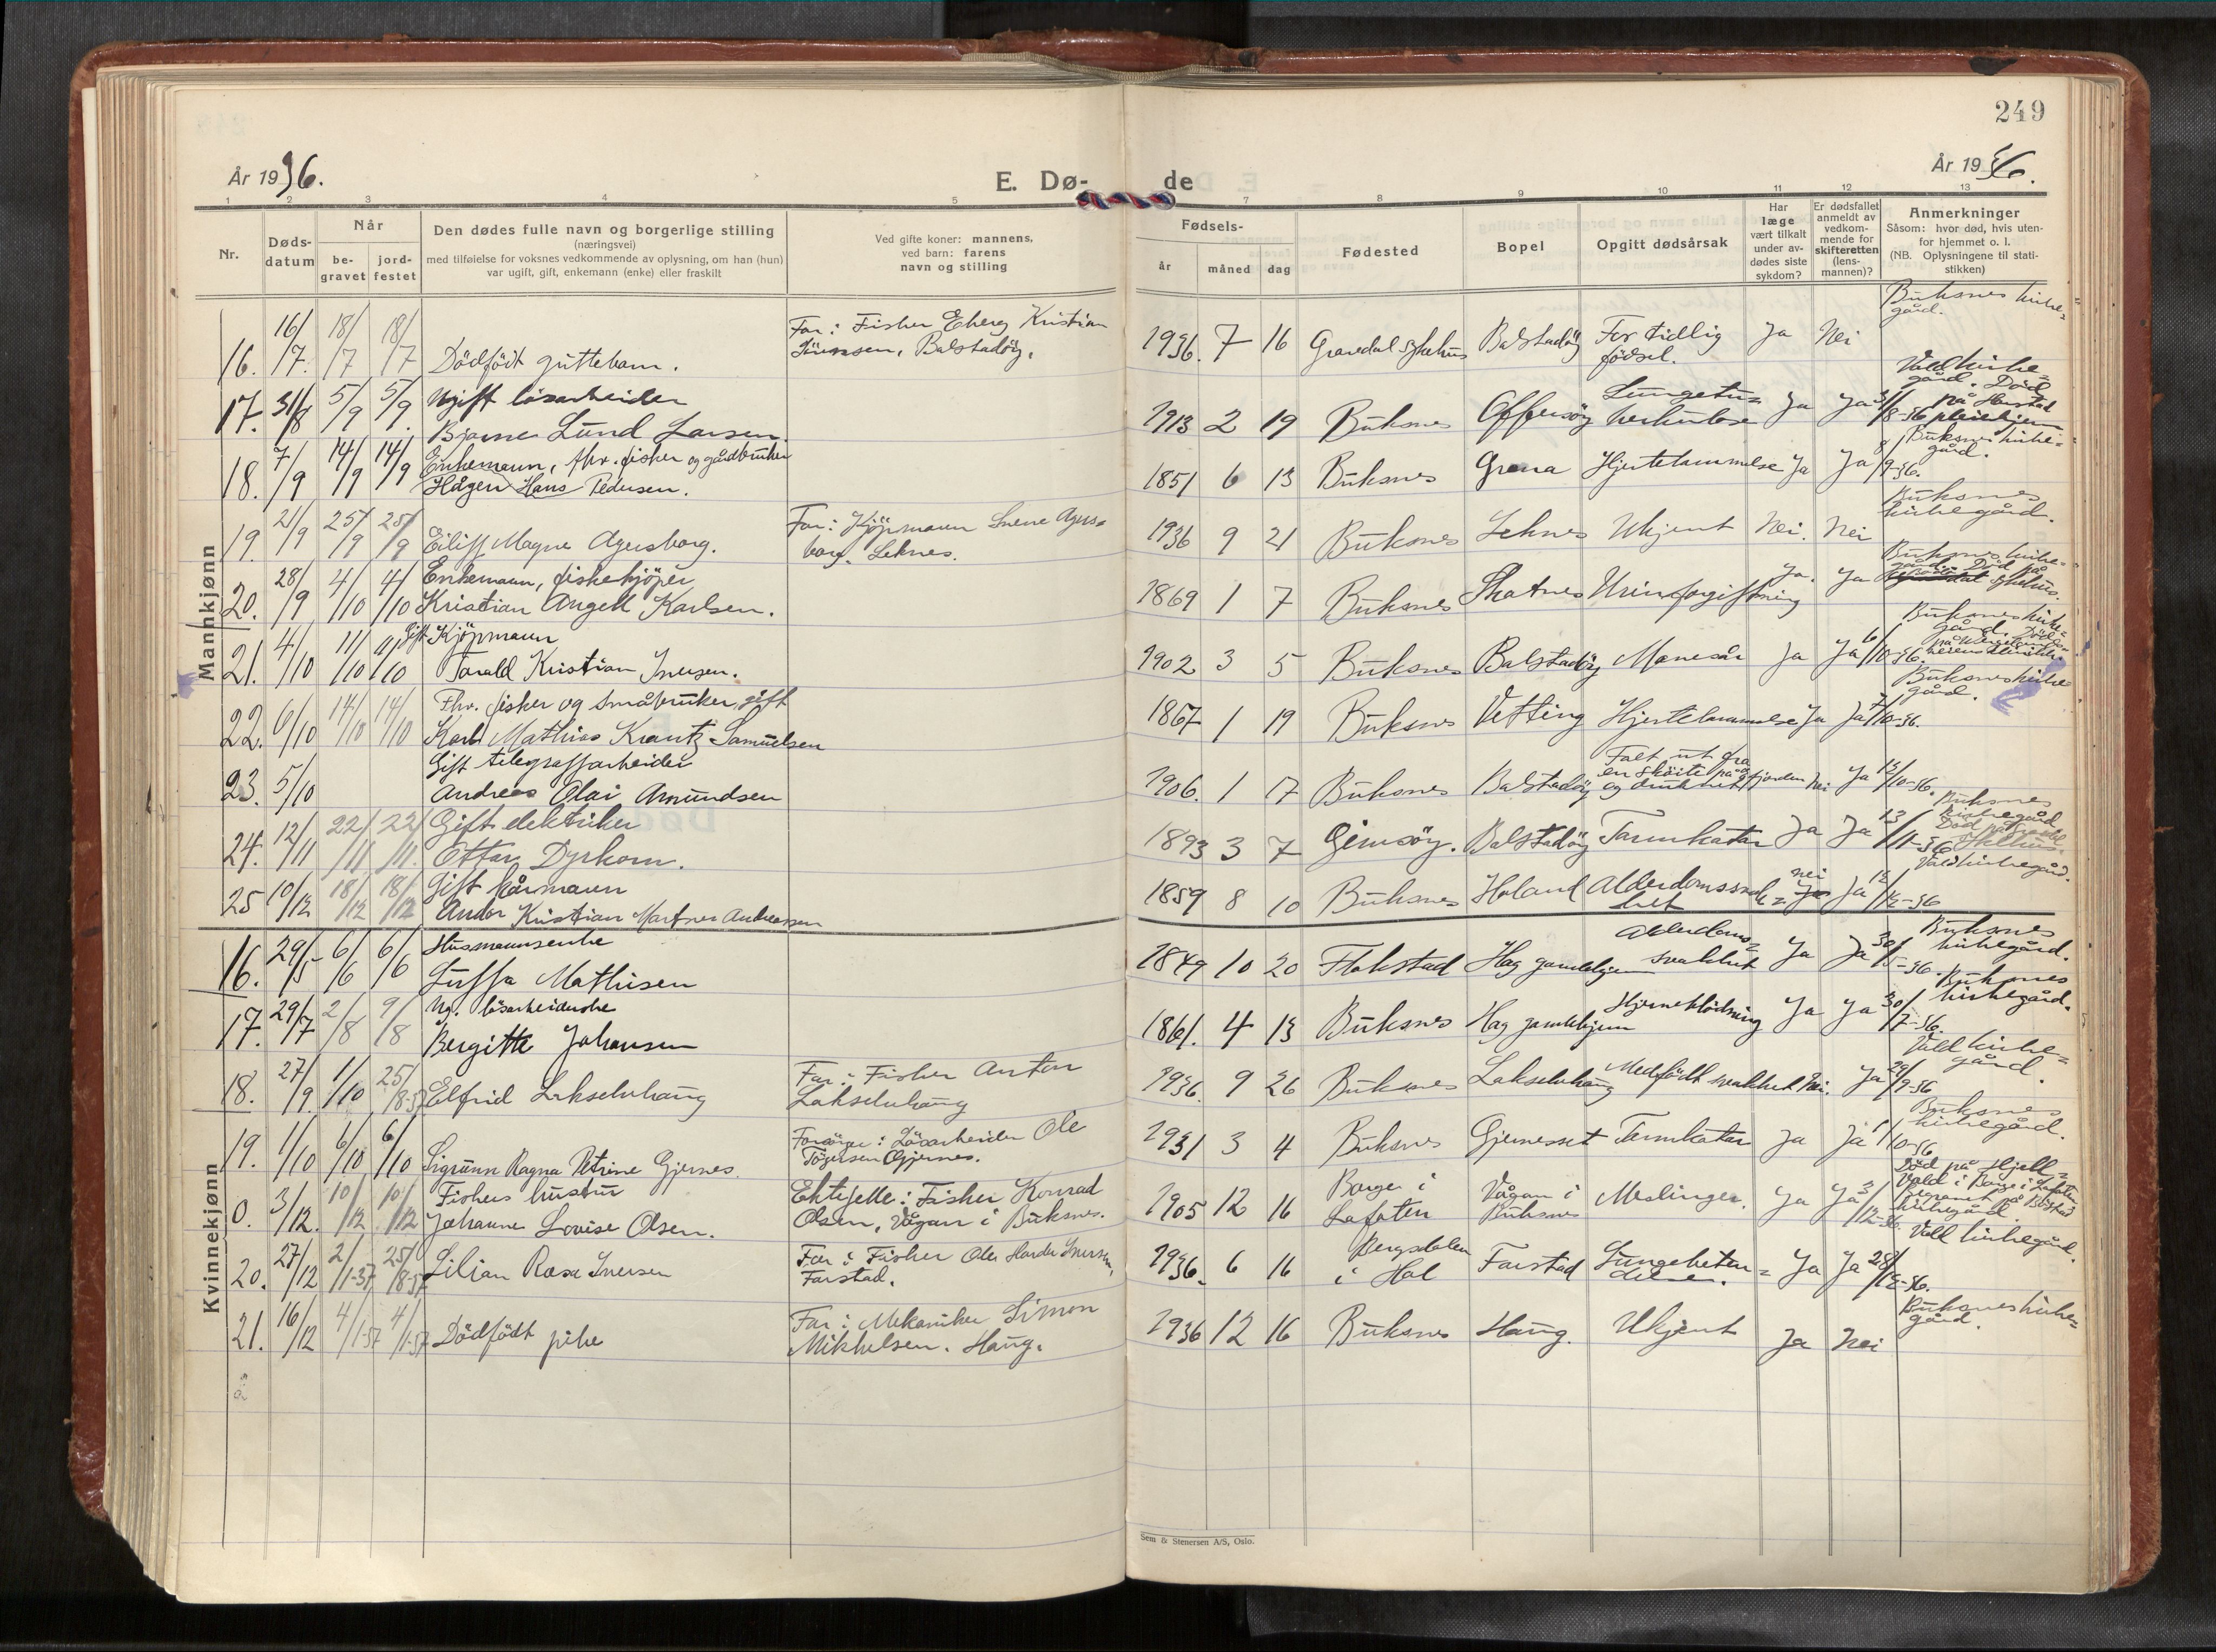 249
År 1936.
E. Dø-
de
År 1936.
1 2 3 4 5 7 8 9 10 11 12 13
Nr.
Døds-
datum
Når
be-
gravet
jord-
festet
Den dødes fulle navn og borgerlige stilling
(næringsvei)
med tilføielse for voksnes vedkommende av oplysning, om han (hun)
var ugift, gift, enkemann (enke) eller fraskilt
Ved gifte koner: mannens,
ved barn: farens
navn og stilling
Fødsels-
år måned dag
Fødested
Bopel
Opgitt dødsårsak
Har
læge
vært tilkalt
under av-
dødes siste
sykdom?
Er dødsfallet
anmeldt av
vedkom-
mende for
skifteretten
(lens-
mannen)?
Anmerkninger
Såsom: hvor død, hvis uten-
for hjemmet o. l.
(NB. Oplysningene til stati-
stikken)
Mannkjønn
16. 16/7. 18/7 18/7 Dödfödt guttebarn.
Far: Fisker Kristian
Balstadöy.
1936. 7 16 Gravdal sykehus Balstadöy For tidlig
födsel. Ja Nei
Buksnes kirke=
gård.
17. 31/8 5/9 5/9. Ugift lösarbeider
Bjarne Lund Larsen.
1913 2 19 Buksnes Offersöy Lungetu=
berkulose Ja Ja 31/8-36
Vold kirke=
gård. Död
på Harstad
pleiehjem
18. 7/9 14/9 14/9 Enkemann, fhv. fisker og gårdbruker
Hågen Hans Pedersen.
1851 6 13 Buksnes Grena Hjertelammelse Ja Ja 8/9-36.
Buksnes kirke=
gård.
19. 21/9 25/9 25/9 Eiliff Magne Agersborg.
Far: Kjöpmann Sverre Agers=
borg. Leknes.
1936 9 21 Buksnes Leknes Ukjent Nei. Nei
Buksnes
kirkegård.
20. 28/9 4/10 4/10 Enkemann, fiskekjöper
Kristian Angell Karlsen.
1869 1 7 Buksnes Skotnes Urinforgiftning Ja. Ja
Buksnes kirke=
gård. Död på
sykehus.
21. 4/10 11/10 11/10 Gift Kjöpmann
Torald Kristian Iversen.
1902 3 5 Buksnes Balstadöy Mavesår Ja Ja 6/10-36.
Buksnes kirke=
gård. Död
22. 6/10 14/10 14/10 Fhv. fisker og småbruker, gift
Karl Mathias Krantz Samuelsen
1867 1 19 Buksnes Vetting Hjertelammelse Ja Ja 7/10-36.
Buksnes kirke
gård.
23. 5/10 Gift telegrafarbeider
Andreas Olai Amundsen
1906. 1 17 Buksnes Balstadöy Falt ut fra
en sköite på fjorden
og druknet Nei Ja 13/10-36.
24. 12/11 22/11 22/11. Gift elektriker
Ottar Dyrkorn.
1893 3 7 Gimsöy. Balstadöy Tarmkatar Ja Ja 13/11-36
Buksnes
kirkegård
Död på Gravdal
sykehus.
25 10/12 18/12 18/12 Gift kårmann
Andor Kristian Martner Andreassen
1859 8 10 Buksnes Holand Alderdomssvak=
het nei Ja Ja 12/12-36
Vold kirkegård.
Kvinnekjønn
16. 29/5 6/6 6/6 Husmannsenke
Luffa Mathisen
1849 10 20 Flakstad Hag gamlehjem Alderdoms=
svakhet Ja Ja 30/5-36.
Buksnes
kirkegård.
17. 29/7 2/8 9/8 Ug. lösarbeiderske
Bergitte Johansen
1861. 4 13 Buksnes Hag gamlehjem Hjerneblödning Ja Ja 30/7-36.
Buksnes
kirkegård.
18. 27/9 1/10 25/8-37 Elfrid Lakselvhaug
Far: Fisker Anton
Lakselvhaug
1936. 9 26 Buksnes Lakselvhaug Medfödt svakhet Nei. Ja 29/9-36
Vold kirke=
gård.
19. 1/10 6/10 6/10 Sigrunn Ragna Petrine Gjernes.
Forsörger: Lösarbeider Ole
Tögersen Gjernes.
1931 3 4 Buksnes Gjernesset Tarmkatar Ja Ja 1/10-36
Buksnes
kirkegård.
0. 3/12. 10/12 10/12 Fiskers hustru
Johanne Lovise Olsen.
Ektefelle: Fisker Konrad
Olsen, Vågan i Buksnes.
1905 12 16 Borge i
Lofoten Vågan i
Buksnes Meslinger. Ja Ja 3/12-36.
Död på Hjell=
vold i Borge i Lofoten
Begravet på Böstad
kirkegård.
20. 27/12 2/1-37 25/8-37 Lilian Rosa Iversen
Far: Fisker Ole Hardu Iversen,
Farstad.
1936. 6 16 Bergsdalen
i Hol Farstad Lungebetен=
delse. Ja Ja 28/12-36.
Voll kirkegård.
21. 16/12 4/1-37 4/1-37 Dödfödt pike
Far: Mekaniker Simon
Mikkelsen. Haug.
1936 12 16 Buksnes Haug. Ukjent Ja Nei
Buksnes kirke=
gård.
Sem & Stenersen A/S, Oslo.